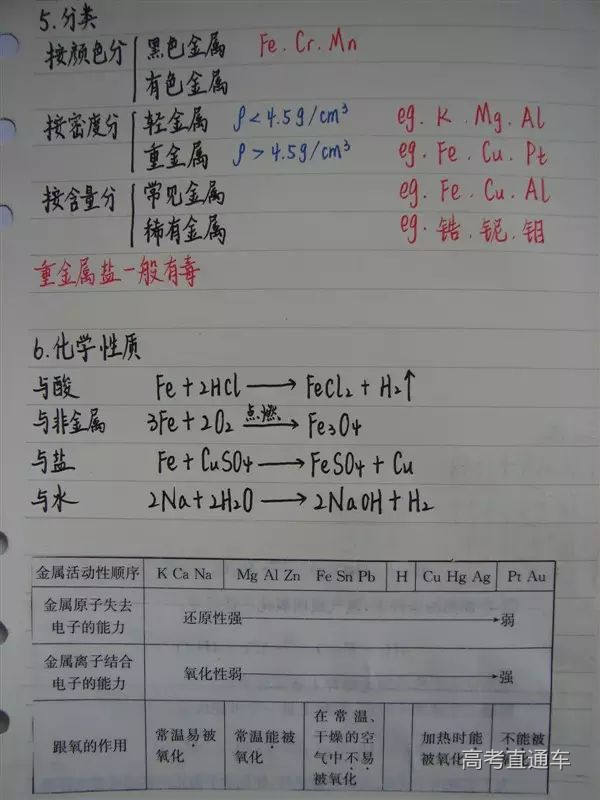 5.分类
按颜色分 黑色金属 Fe.Cr.Mn
有色金属
按密度分 轻金属 ρ<4.5g/cm³ eg. K.Mg.Al
重金属 ρ>4.5g/cm³ eg. Fe.Cu.Pt
按含量分 常见金属 eg. Fe.Cu.Al
稀有金属 eg. 锆.铌.钼
重金属盐一般有毒
6.化学性质
与酸 Fe+2HCl→FeCl₂+H₂↑
与非金属 3Fe+2O₂ 点燃→ Fe₃O₄
与盐 Fe+CuSO₄→FeSO₄+Cu
与水 2Na+2H₂O→2NaOH+H₂
金属活动性顺序 K Ca Na Mg Al Zn Fe Sn Pb H Cu Hg Ag Pt Au
金属原子失去
电子的能力
还原性强→弱
金属离子结合
电子的能力
氧化性弱→强
跟氧的作用
常温易被
氧化
常温能被
氧化
在常温、
干燥的空
气中不易
被氧化
加热时能
被氧化
不能被
高考直通车